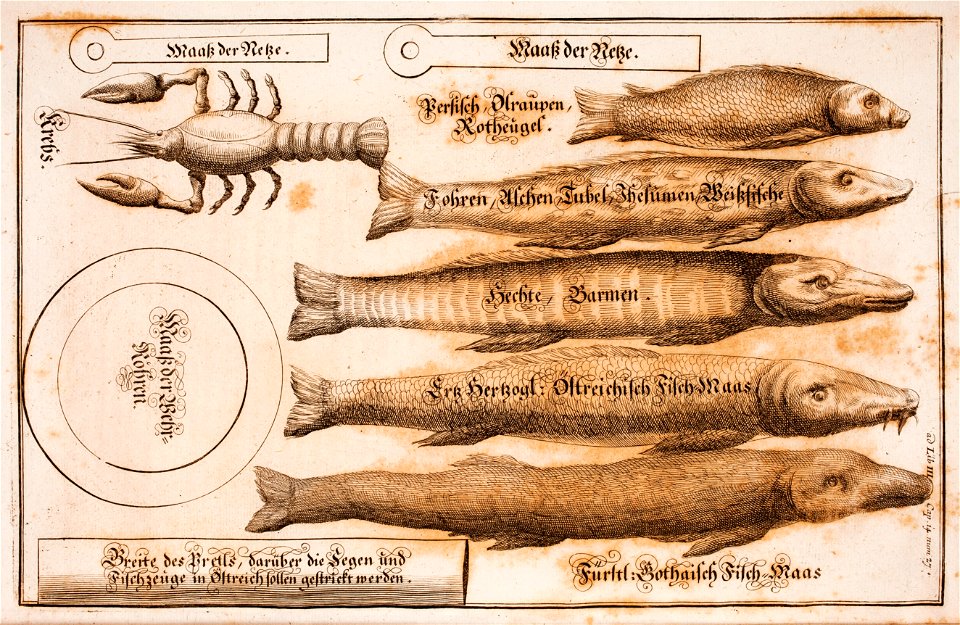 Maaß der Netze.
Maaß der Netze.
Krebs.
Persisch, Olraupen,
Rotheugel.
Fohren, Aschen, Tubel, Thelümen, Weißfische
Hechte, Barmen.
Maaß der Wehr=
Röhren.
Ertz Hertzogl: Östreichisch Fisch-Maas
Breite des Bretls, darüber die Segen und
Fischzeuge in Östreich sollen gestrickt werden.
Fürstl: Gothaisch Fisch-Maas
ad Lib III Cap: 14 num 27